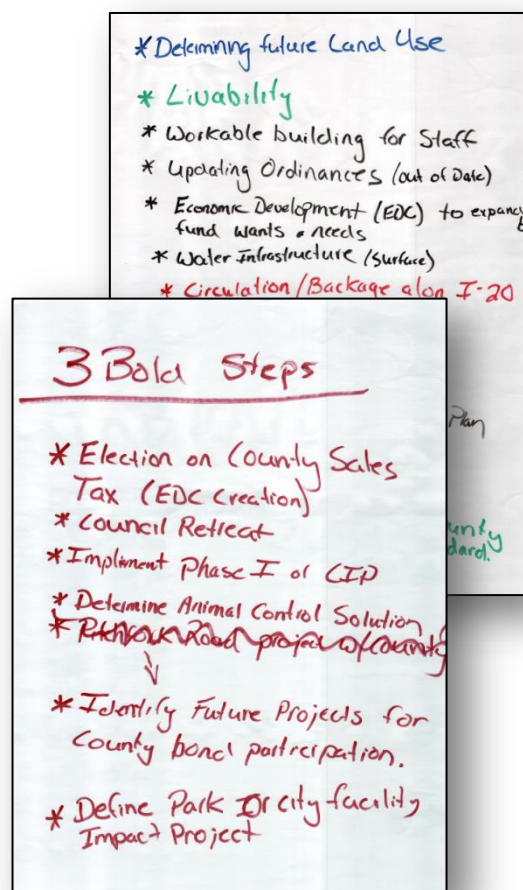 * Determining future Land Use
* Livability
* Workable building for Staff
* Updating Ordinances (out of Date)
* Economic Development (EDC) to expand
fund wants & needs
* Water Infrastructure (Surface)
* Circulation/Backage alon I-20
Plan
unty
dard.
3 Bold Steps
* Election on County Sales
Tax (EDC Creation)
* Council Retreat
* Impliment Phase I of CIP
* Determine Animal Control Solution
* Road project w/ county
* Identify Future Projects for
County bond participation.
* Define Park Or city facility
Impact Project